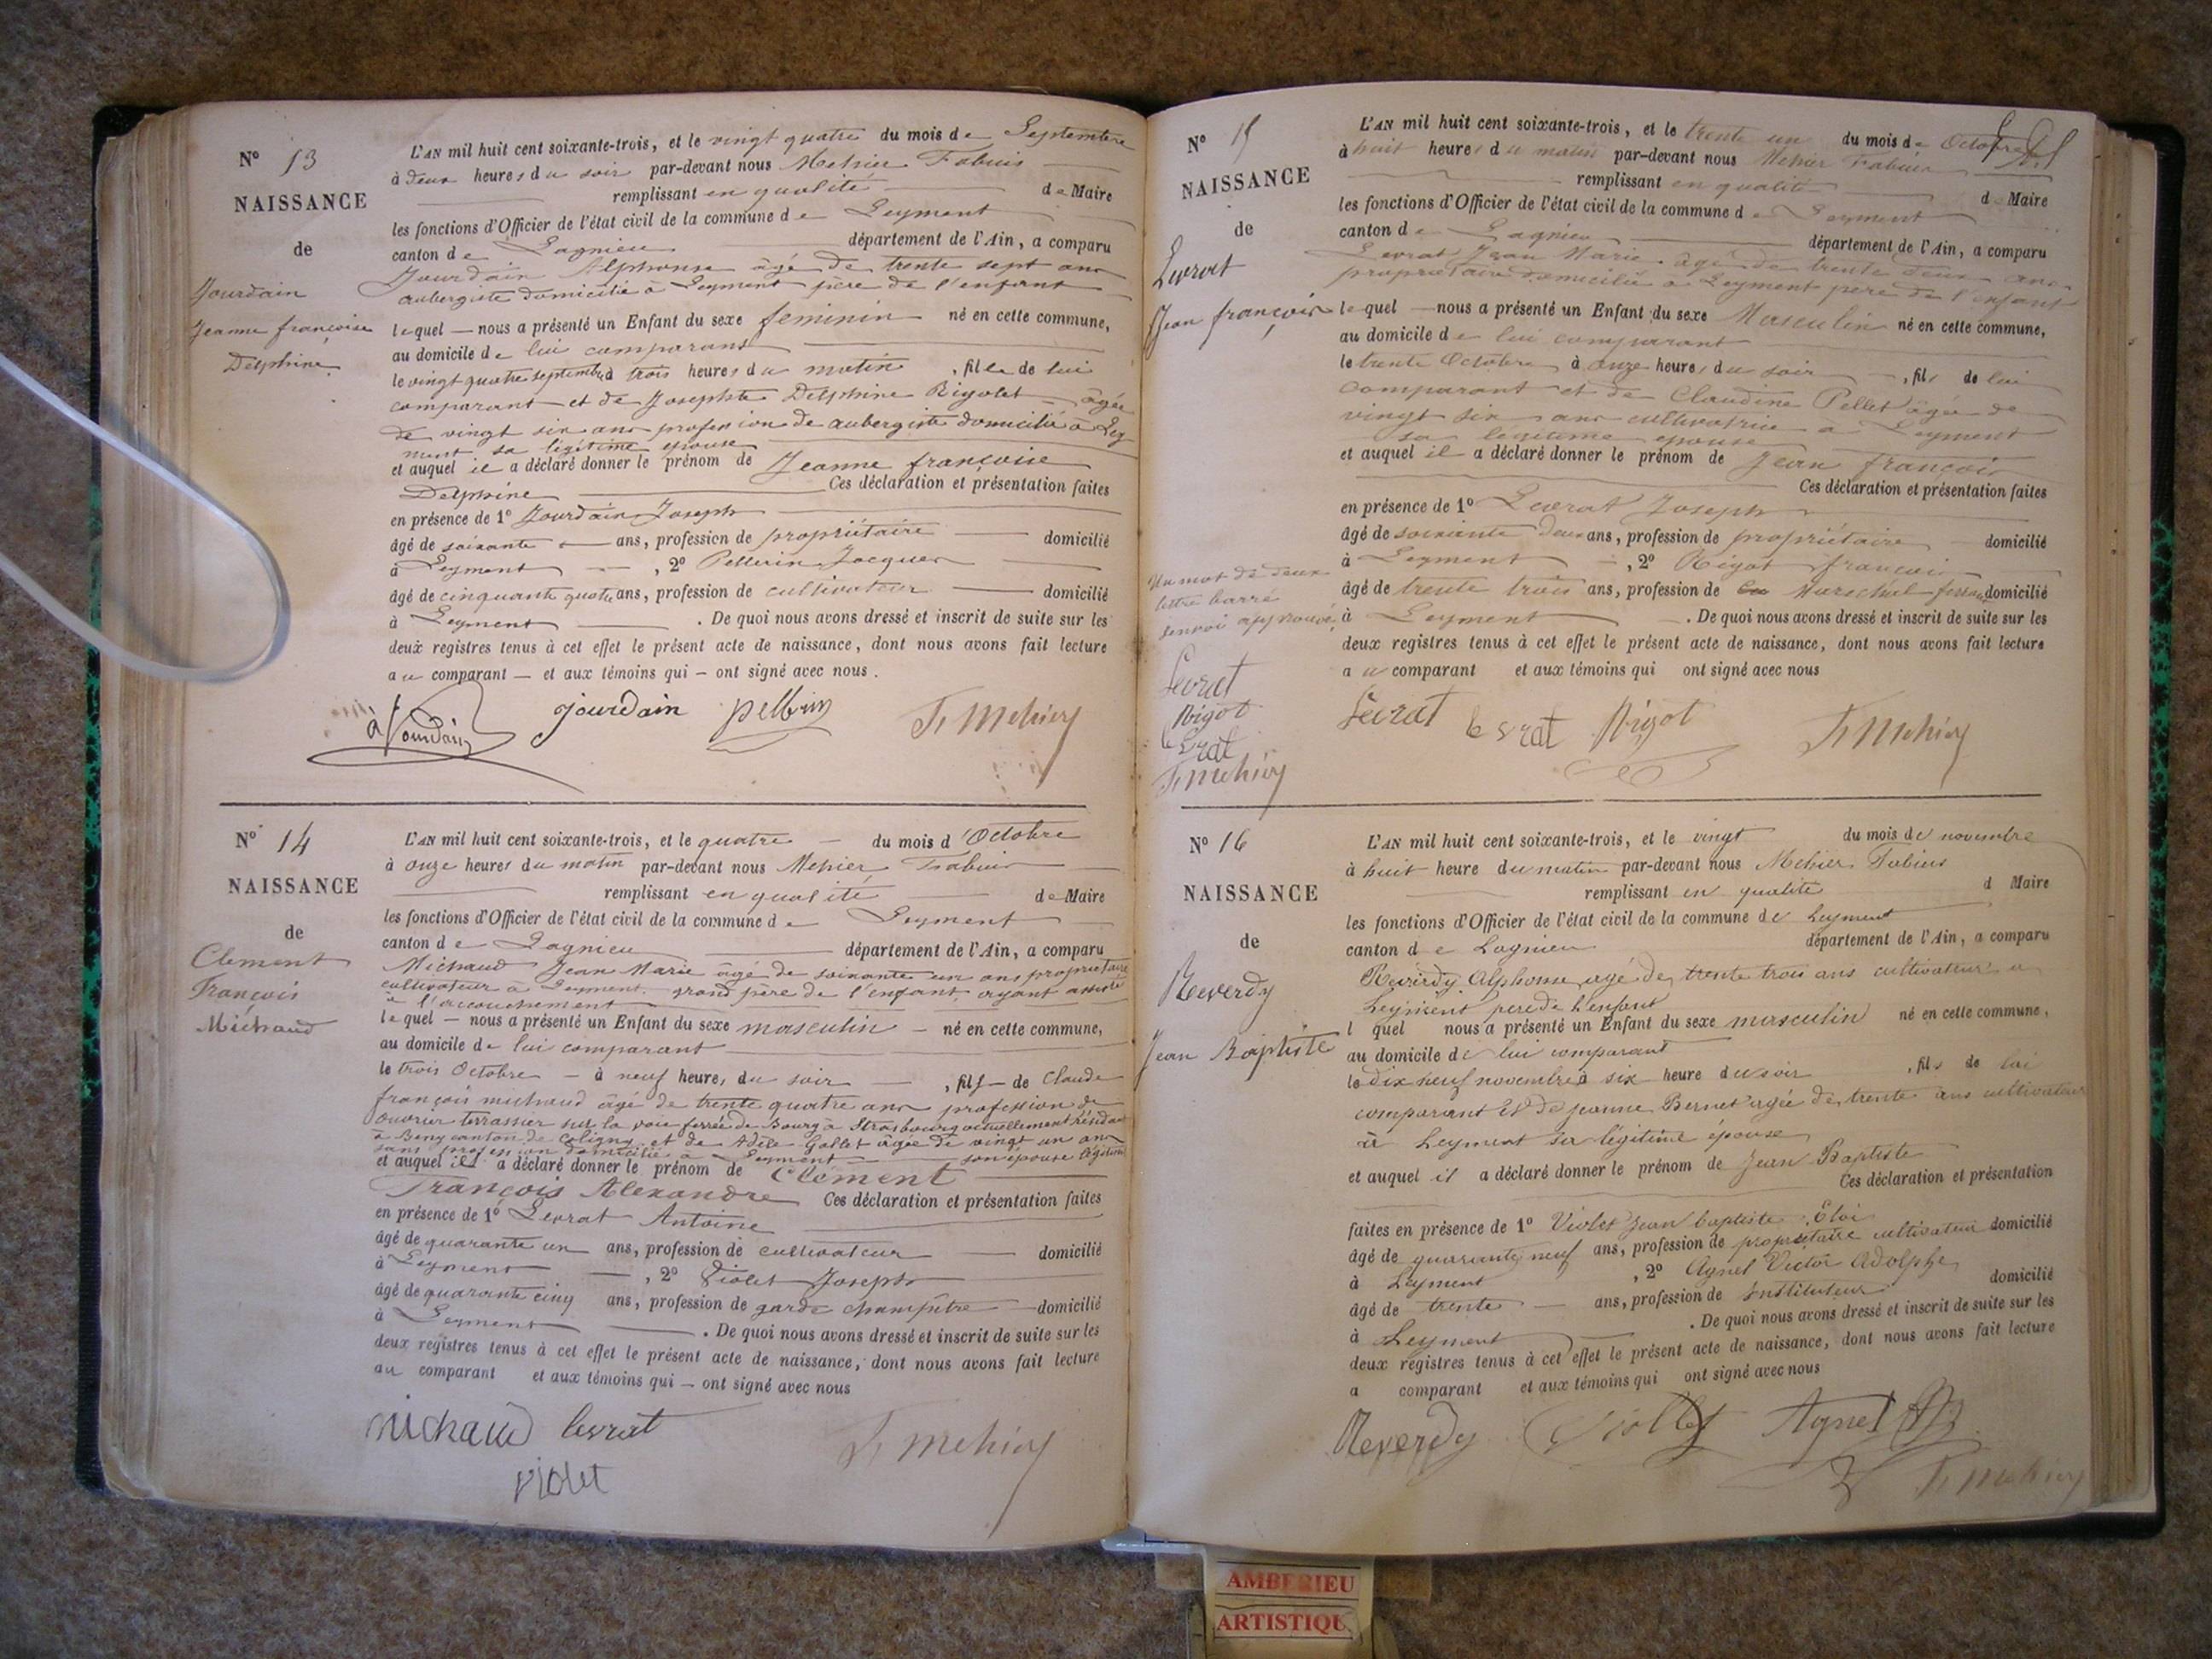 N° 13
NAISSANCE
de
Jourdain
Jeanne françoise
Delphine
L'AN mil huit cent soixante-trois, et le vingt quatre du mois de Septembre
à deux heures du soir par-devant nous Mehier Fabius
remplissant en qualité de Maire
les fonctions d'Officier de l'état civil de la commune de Leyment
canton de Lagnieu département de l'Ain, a comparu
Jourdain Alphonse âgé de trente sept ans
aubergiste domicilié à Leyment père de l'enfant
lequel — nous a présenté un Enfant du sexe feminin né en cette commune,
au domicile de lui comparant
le vingt quatre septembre à trois heures du matin, fille de lui
comparant et de Josephte Delphine Rigolet âgée
de vingt six ans profession de aubergiste domicilié à Ley
ment sa légitime epouse
et auquel il a déclaré donner le prénom de Jeanne françoise
Delphine Ces déclaration et présentation faites
en présence de 1° Jourdain Joseph
âgé de soixante ans, profession de propriétaire domicilié
à Leyment, 2° Pellerin Jacques
âgé de cinquante quatre ans, profession de cultivateur domicilié
à Leyment. De quoi nous avons dressé et inscrit de suite sur les
deux registres tenus à cet effet le présent acte de naissance, dont nous avons fait lecture
au comparant — et aux témoins qui — ont signé avec nous.
à Jourdain jourdain pellerin F. Mehier
N° 14
NAISSANCE
de
Clement
François
Michaud
L'AN mil huit cent soixante-trois, et le quatre du mois d'Octobre
à onze heures du matin par-devant nous Mehier Fabius
remplissant en qualité de Maire
les fonctions d'Officier de l'état civil de la commune de Leyment
canton de Lagnieu département de l'Ain, a comparu
Michaud Jean Marie âgé de soixante un ans propriétaire
cultivateur a Leyment. grand père de l'enfant ayant assisté
a l'accouchement
lequel — nous a présenté un Enfant du sexe masculin — né en cette commune,
au domicile de lui comparant
le trois Octobre — à neuf heures du soir, fils — de Claude
françois michaud âgé de trente quatre ans profession de
ouvrier terrassier sur la voie ferrée de Bourg a Strasbourg actuellement résidant
a Beny canton de Coligny et de Adèle Gallet âgée de vingt un ans
sans profession domicilié a Leyment son épouse légitime
et auquel il a déclaré donner le prénom de Clément
François Alexandre Ces déclaration et présentation faites
en présence de 1° Levrat Antoine
âgé de quarante un ans, profession de cultivateur domicilié
à Leyment, 2° Violet Joseph
âgé de quarante cinq ans, profession de garde champêtre domicilié
à Leyment. De quoi nous avons dressé et inscrit de suite sur les
deux registres tenus à cet effet le présent acte de naissance, dont nous avons fait lecture
au comparant et aux témoins qui — ont signé avec nous
michaud levrat F. Mehier
violet
N° 15
NAISSANCE
de
Levrat
Jean françois
L'AN mil huit cent soixante-trois, et le trente un du mois de Octobre
à huit heures du matin par-devant nous Mehier Fabius
remplissant en qualité d Maire
les fonctions d'Officier de l'état civil de la commune de Leyment
canton de Lagnieu département de l'Ain, a comparu
Levrat Jean Marie âgé de trente deux ans
propriétaire domicilié a Leyment père de l'enfant
lequel — nous a présenté un Enfant du sexe Masculin né en cette commune,
au domicile de lui comparant
le trente Octobre à onze heures du soir, fils de lui
comparant et de Claudine Pellet âgée de
vingt six ans cultivatrice a Leyment
sa légitime epouse
et auquel il a déclaré donner le prénom de Jean françois
Ces déclaration et présentation faites
en présence de 1° Levrat Joseph
âgé de soixante deux ans, profession de propriétaire domicilié
à Leyment, 2° Rigot françois
âgé de trente trois ans, profession de Marechal ferrant domicilié
à Leyment. De quoi nous avons dressé et inscrit de suite sur les
deux registres tenus à cet effet le présent acte de naissance, dont nous avons fait lecture
au comparant et aux témoins qui ont signé avec nous
Un mot de deux
lettre barré
renvoi approuvé
Levrat
Rigot
levrat
F. Mehier
Levrat levrat Rigot F. Mehier
N° 16
NAISSANCE
de
Reverdy
Jean Baptiste
L'AN mil huit cent soixante-trois, et le vingt du mois de novembre
à huit heure du matin par-devant nous Mehier Fabius
remplissant en qualité d Maire
les fonctions d'Officier de l'état civil de la commune de Leyment
canton de Lagnieu département de l'Ain, a comparu
Reverdy Alphonse agé de trente trois ans cultivateur a
Leyment pere de l'enfant
l quel nous a présenté un Enfant du sexe masculin né en cette commune,
au domicile de lui comparant
le dix neuf novembre à six heure du soir, fils de lui
comparant et de jeanne Bernet agée de trente ans cultivateur
à Leyment sa légitime épouse
et auquel il a déclaré donner le prénom de Jean Baptiste
Ces déclaration et présentation
faites en présence de 1° Violet Jean baptiste Eloi
âgé de quarante neuf ans, profession de propriétaire cultivateur domicilié
à Leyment, 2° Agnel Victor Adolphe
âgé de trente ans, profession de instituteur domicilié
à Leyment. De quoi nous avons dressé et inscrit de suite sur les
deux registres tenus à cet effet le présent acte de naissance, dont nous avons fait lecture
a comparant et aux témoins qui ont signé avec nous
Reverdy Viollet Agnel
F. Mehier
AMBERIEU
ARTISTIQU